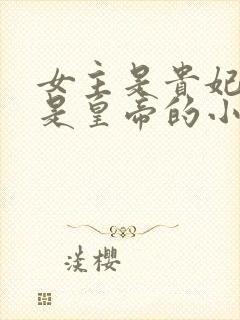 女主是貴妃
是皇帝的小
淡櫻